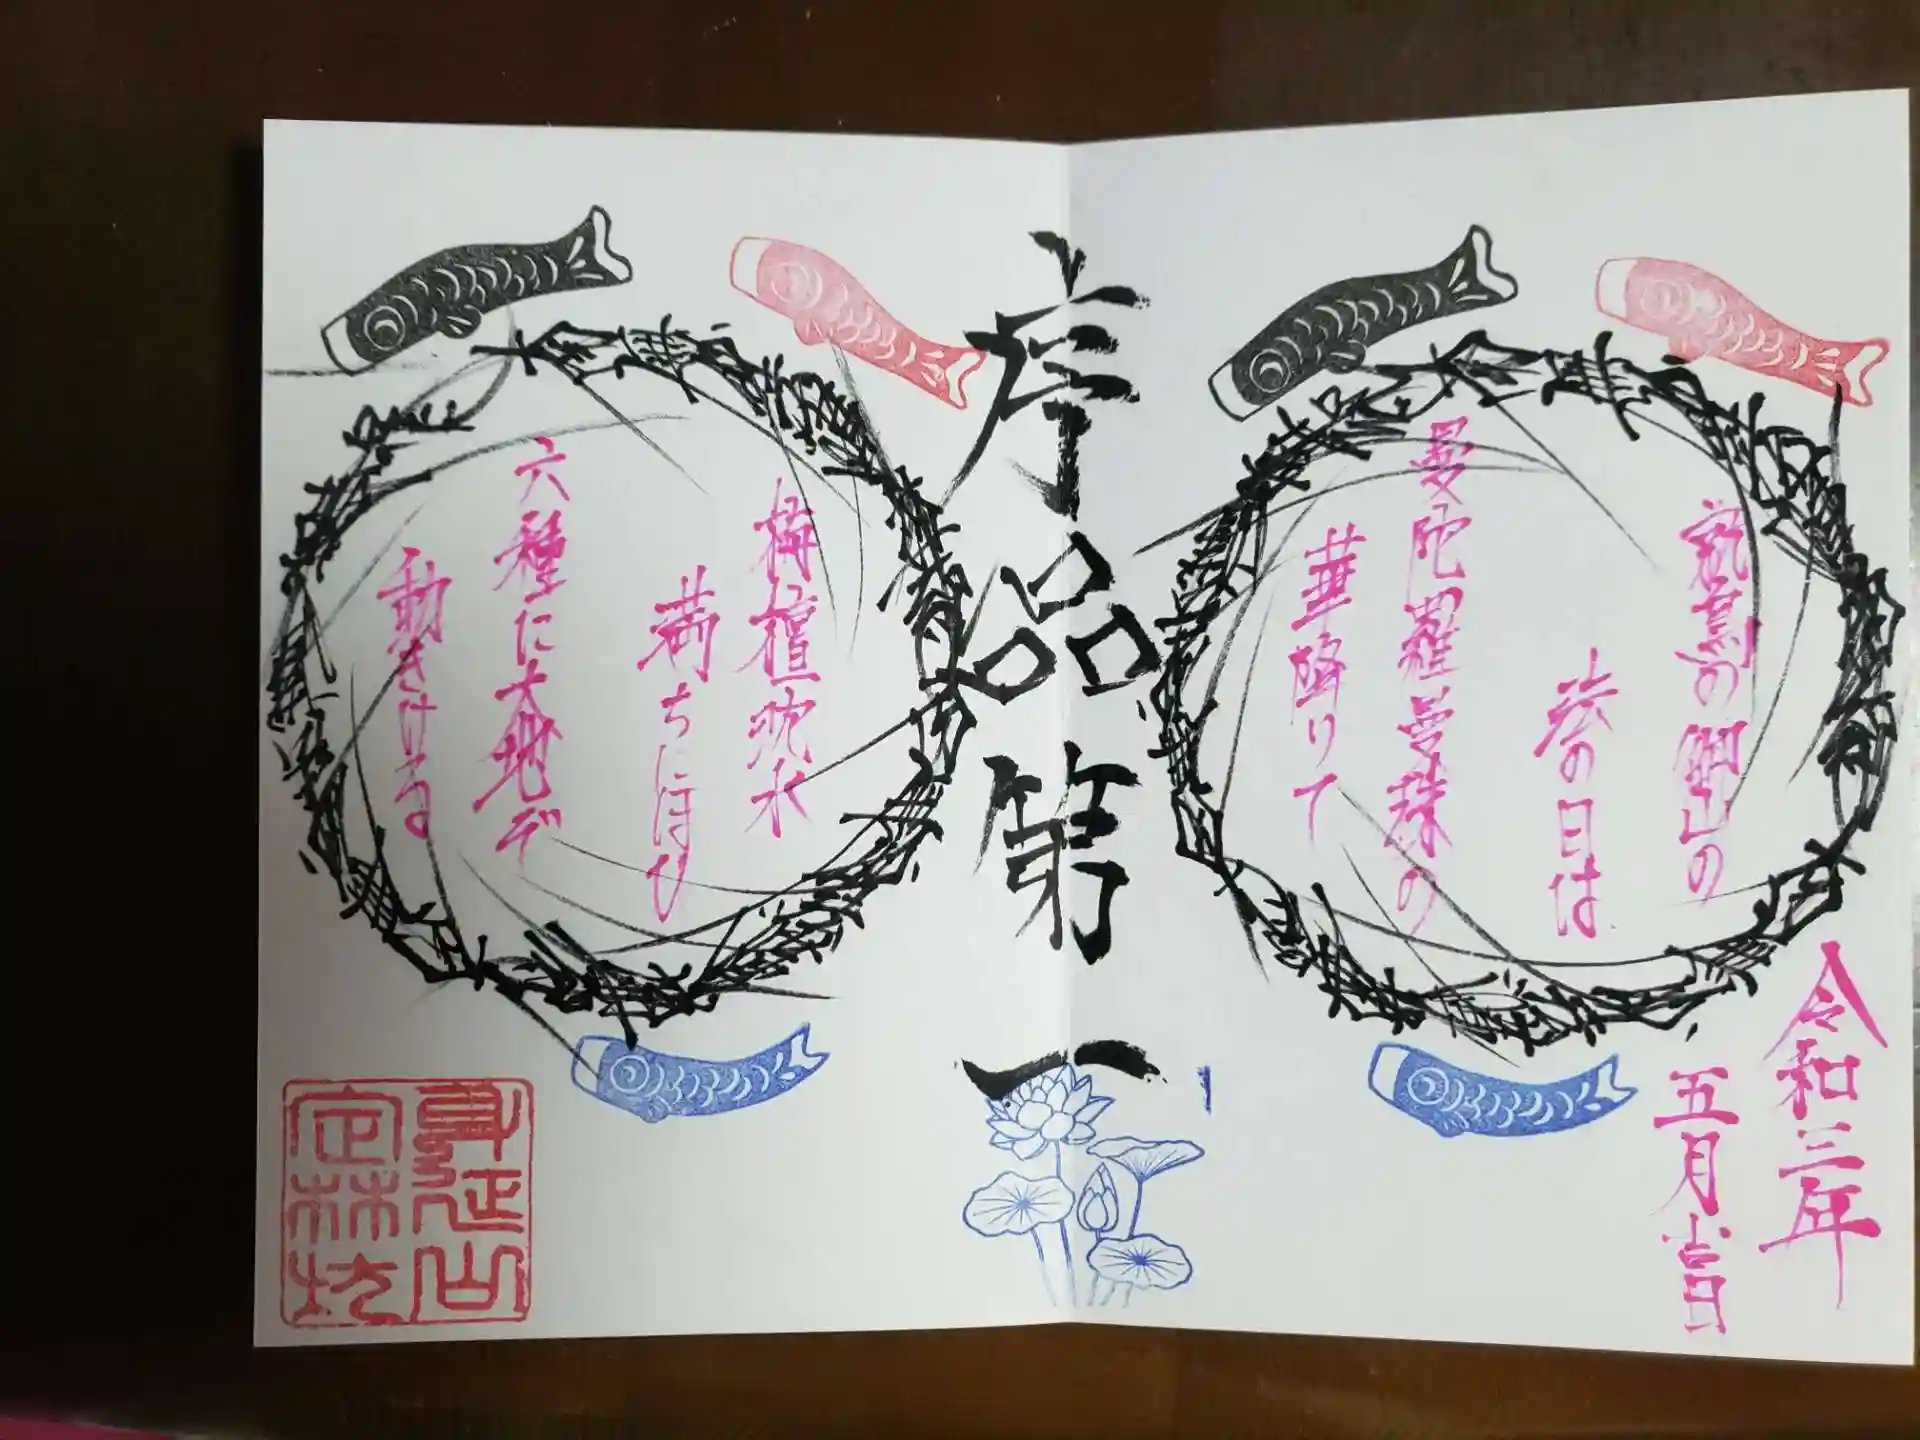 序品第一
霊鷲の御山の
法の日は
曼陀羅曼珠の
華降りて
栴檀吹水
満ちにほひ
六種に大地ぞ
動きける
令和三年
五月吉日
身延山
定林坊